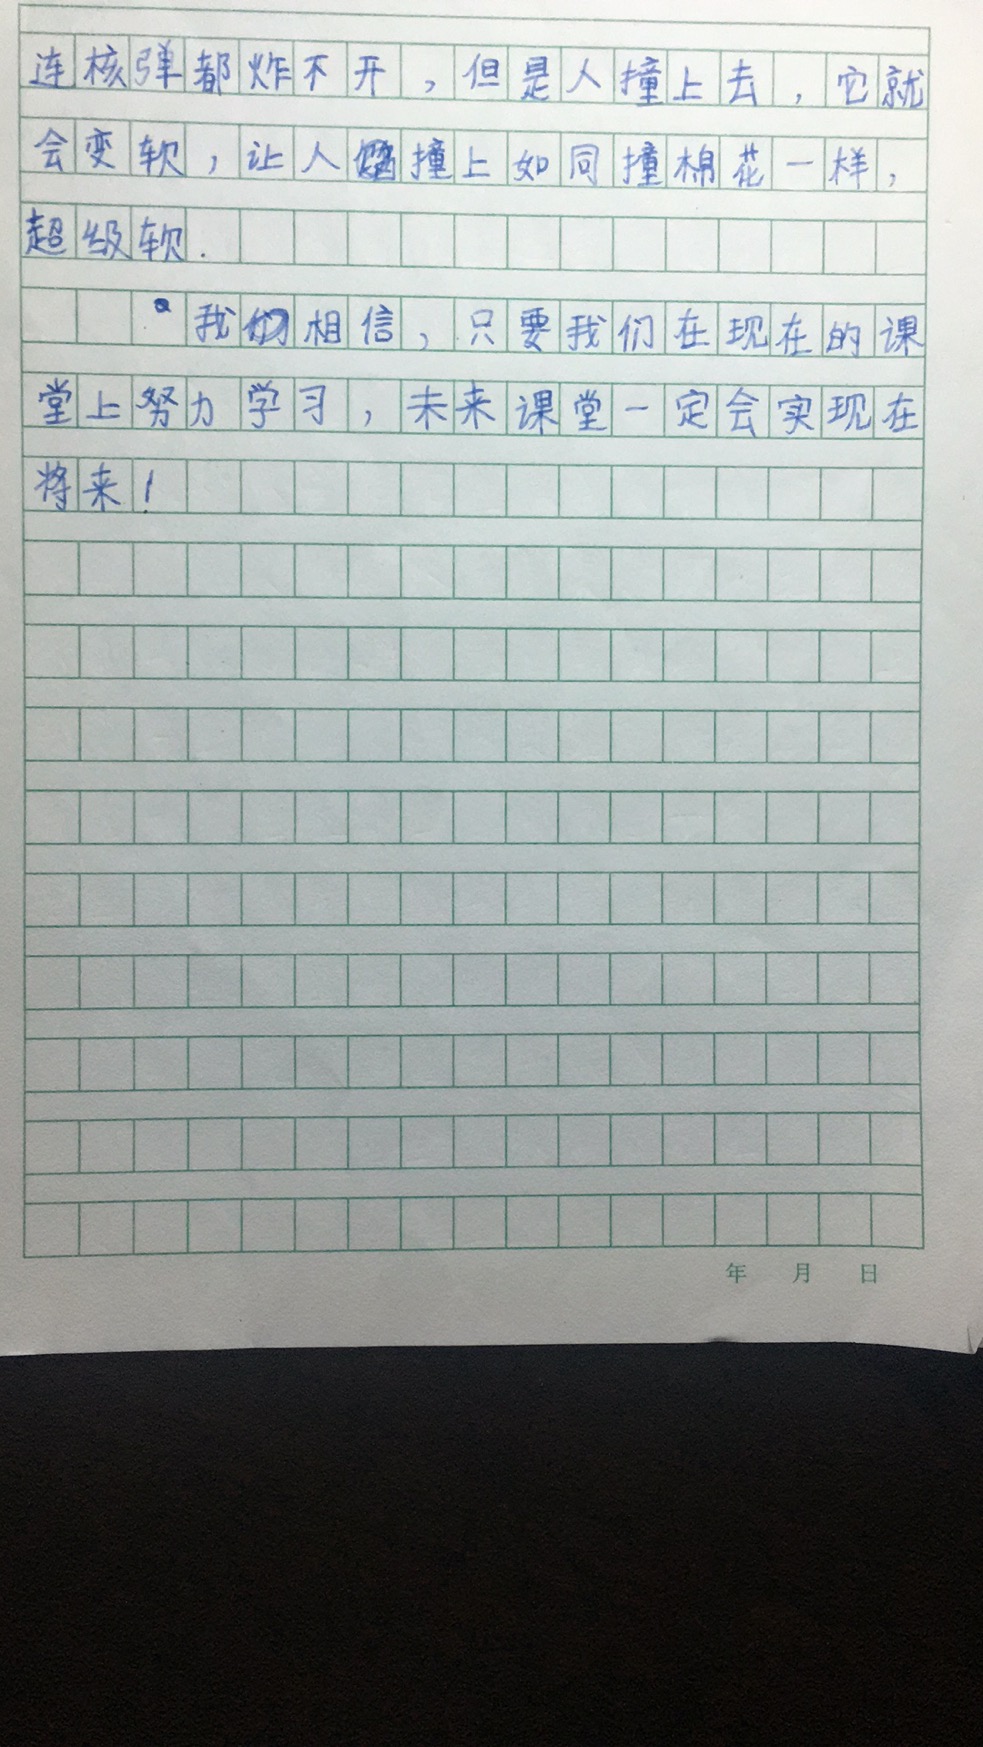 连核弹都炸不开，但是人撞上去，它就
会变软，让人撞上如同撞棉花一样，
超级软.
我们相信，只要我们在现在的课
堂上努力学习，未来课堂一定会实现在
将来！
年 月 日